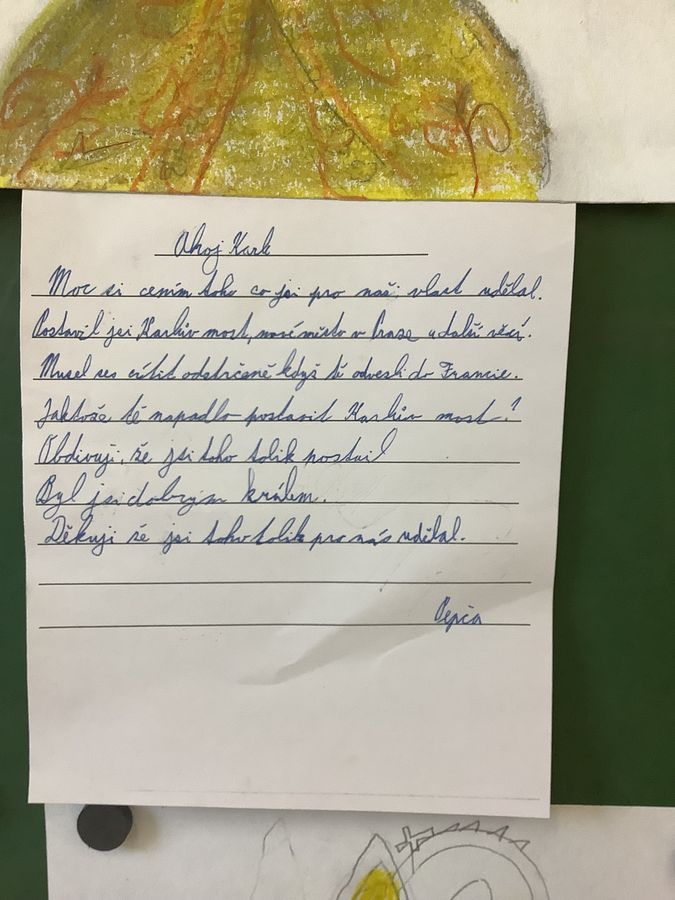 Ahoj Karle
Moc si cením toho co jsi pro naši vlast udělal.
Postavil jsi Karlův most, nové město v Praze a další věcí.
Musel ses cítit odstrčeně když tě odvesli do Francie.
Jaktože tě napadlo postavit Karlův most?
Obdivuji, že jsi toho tolik postavil
Byl jsi dobrym králem.
Děkuji še jsi toho tolik pro nás udělal.
Pepča